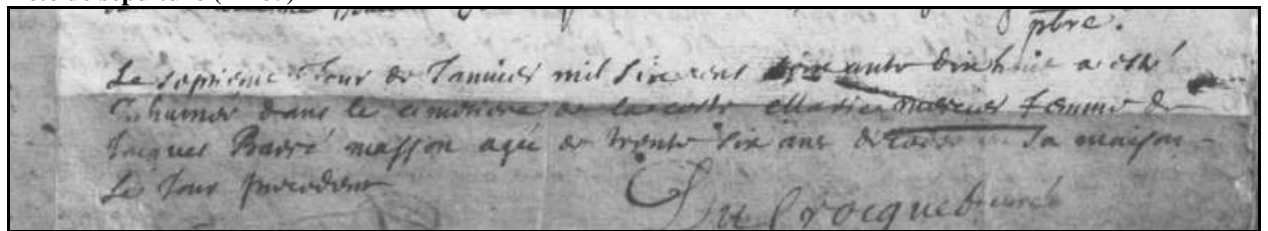 ptre.
Le septieme Jour de Januier mil six cens soixante dix huit a esté
Inhumée dans le cimetiere de la coste Marie mercier femme de
Jacques Barré masson agée de trente six ans decedée en sa maison
le Jour precedent
Du Crocq curé